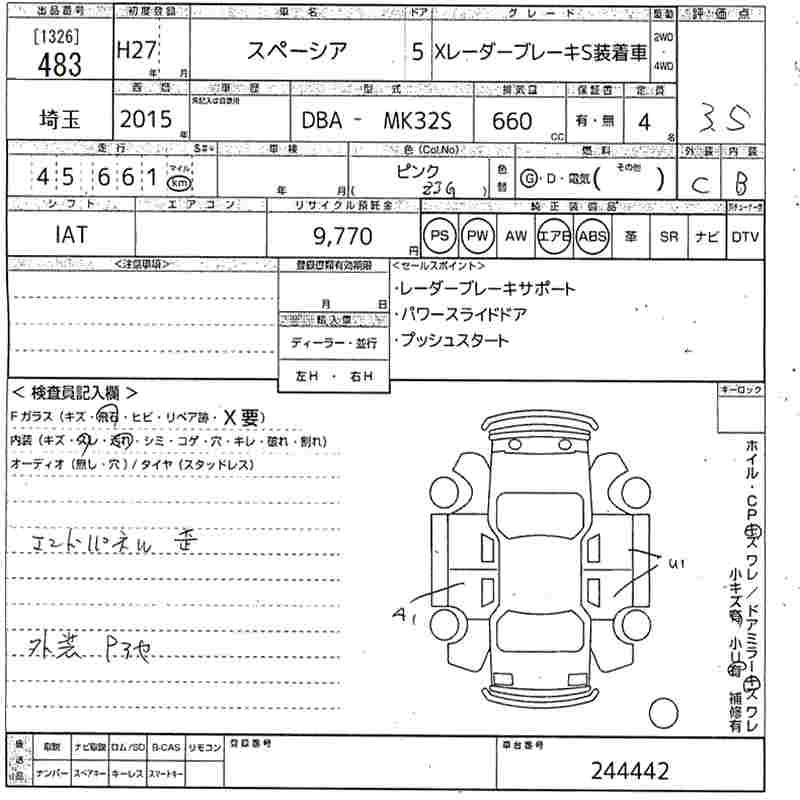 出品番号 初度登録 車名 ドア グレード 駆動 評価点
[1326] 483 H27 年 月 スペーシア 5 XレーダーブレーキS装着車 2WD・4WD 3.5
埼玉 2015 年 車歴 未記入は自家用 型式 DBA - MK32S 排気量 660 CC 保証書 有・無 定員 4 名
走行 車検 色(Col.No) 燃料 外装 内装
45,661 マイル km 年 月 ピンク ( 83G ) 色替 G・D・電気( その他 ) C B
シフト エアコン リサイクル預託金 純正装備品
IAT 9,770 円 PS PW AW エアB ABS 革 SR ナビ DTV
<注意事項> 登録書類有効期限 <セールスポイント>
月 日 ・レーダーブレーキサポート
輸入車 ・パワースライドドア
ディーラー・並行 ・プッシュスタート
左H ・ 右H
< 検査員記入欄 > キーロック
Fガラス (キズ・飛石・ヒビ・リペア跡・X要)
内装 (キズ・スレ・汚れ・シミ・コゲ・穴・キレ・破れ・割れ)
オーディオ (無し・穴) / タイヤ (スタッドレス)
エンドパネル 歪
外装 Pヨセ
A1
U1
ホイル・CPキズ ワレ/ドアミラーキズ ワレ
小キズ有 小U有 補修有
後送品 取説 ナビ取説 ロム/SD B-CAS リモコン 登録番号 車台番号
ナンバー スペアキー キーレス スマートキー 244442